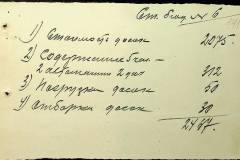 Ст. бланк № 6
1) Стоимость досок 2075.
2) Содержание
2 десятника 2 дня 312
3) Нагрузка досок 50
4) Отборка досок 30
2467.